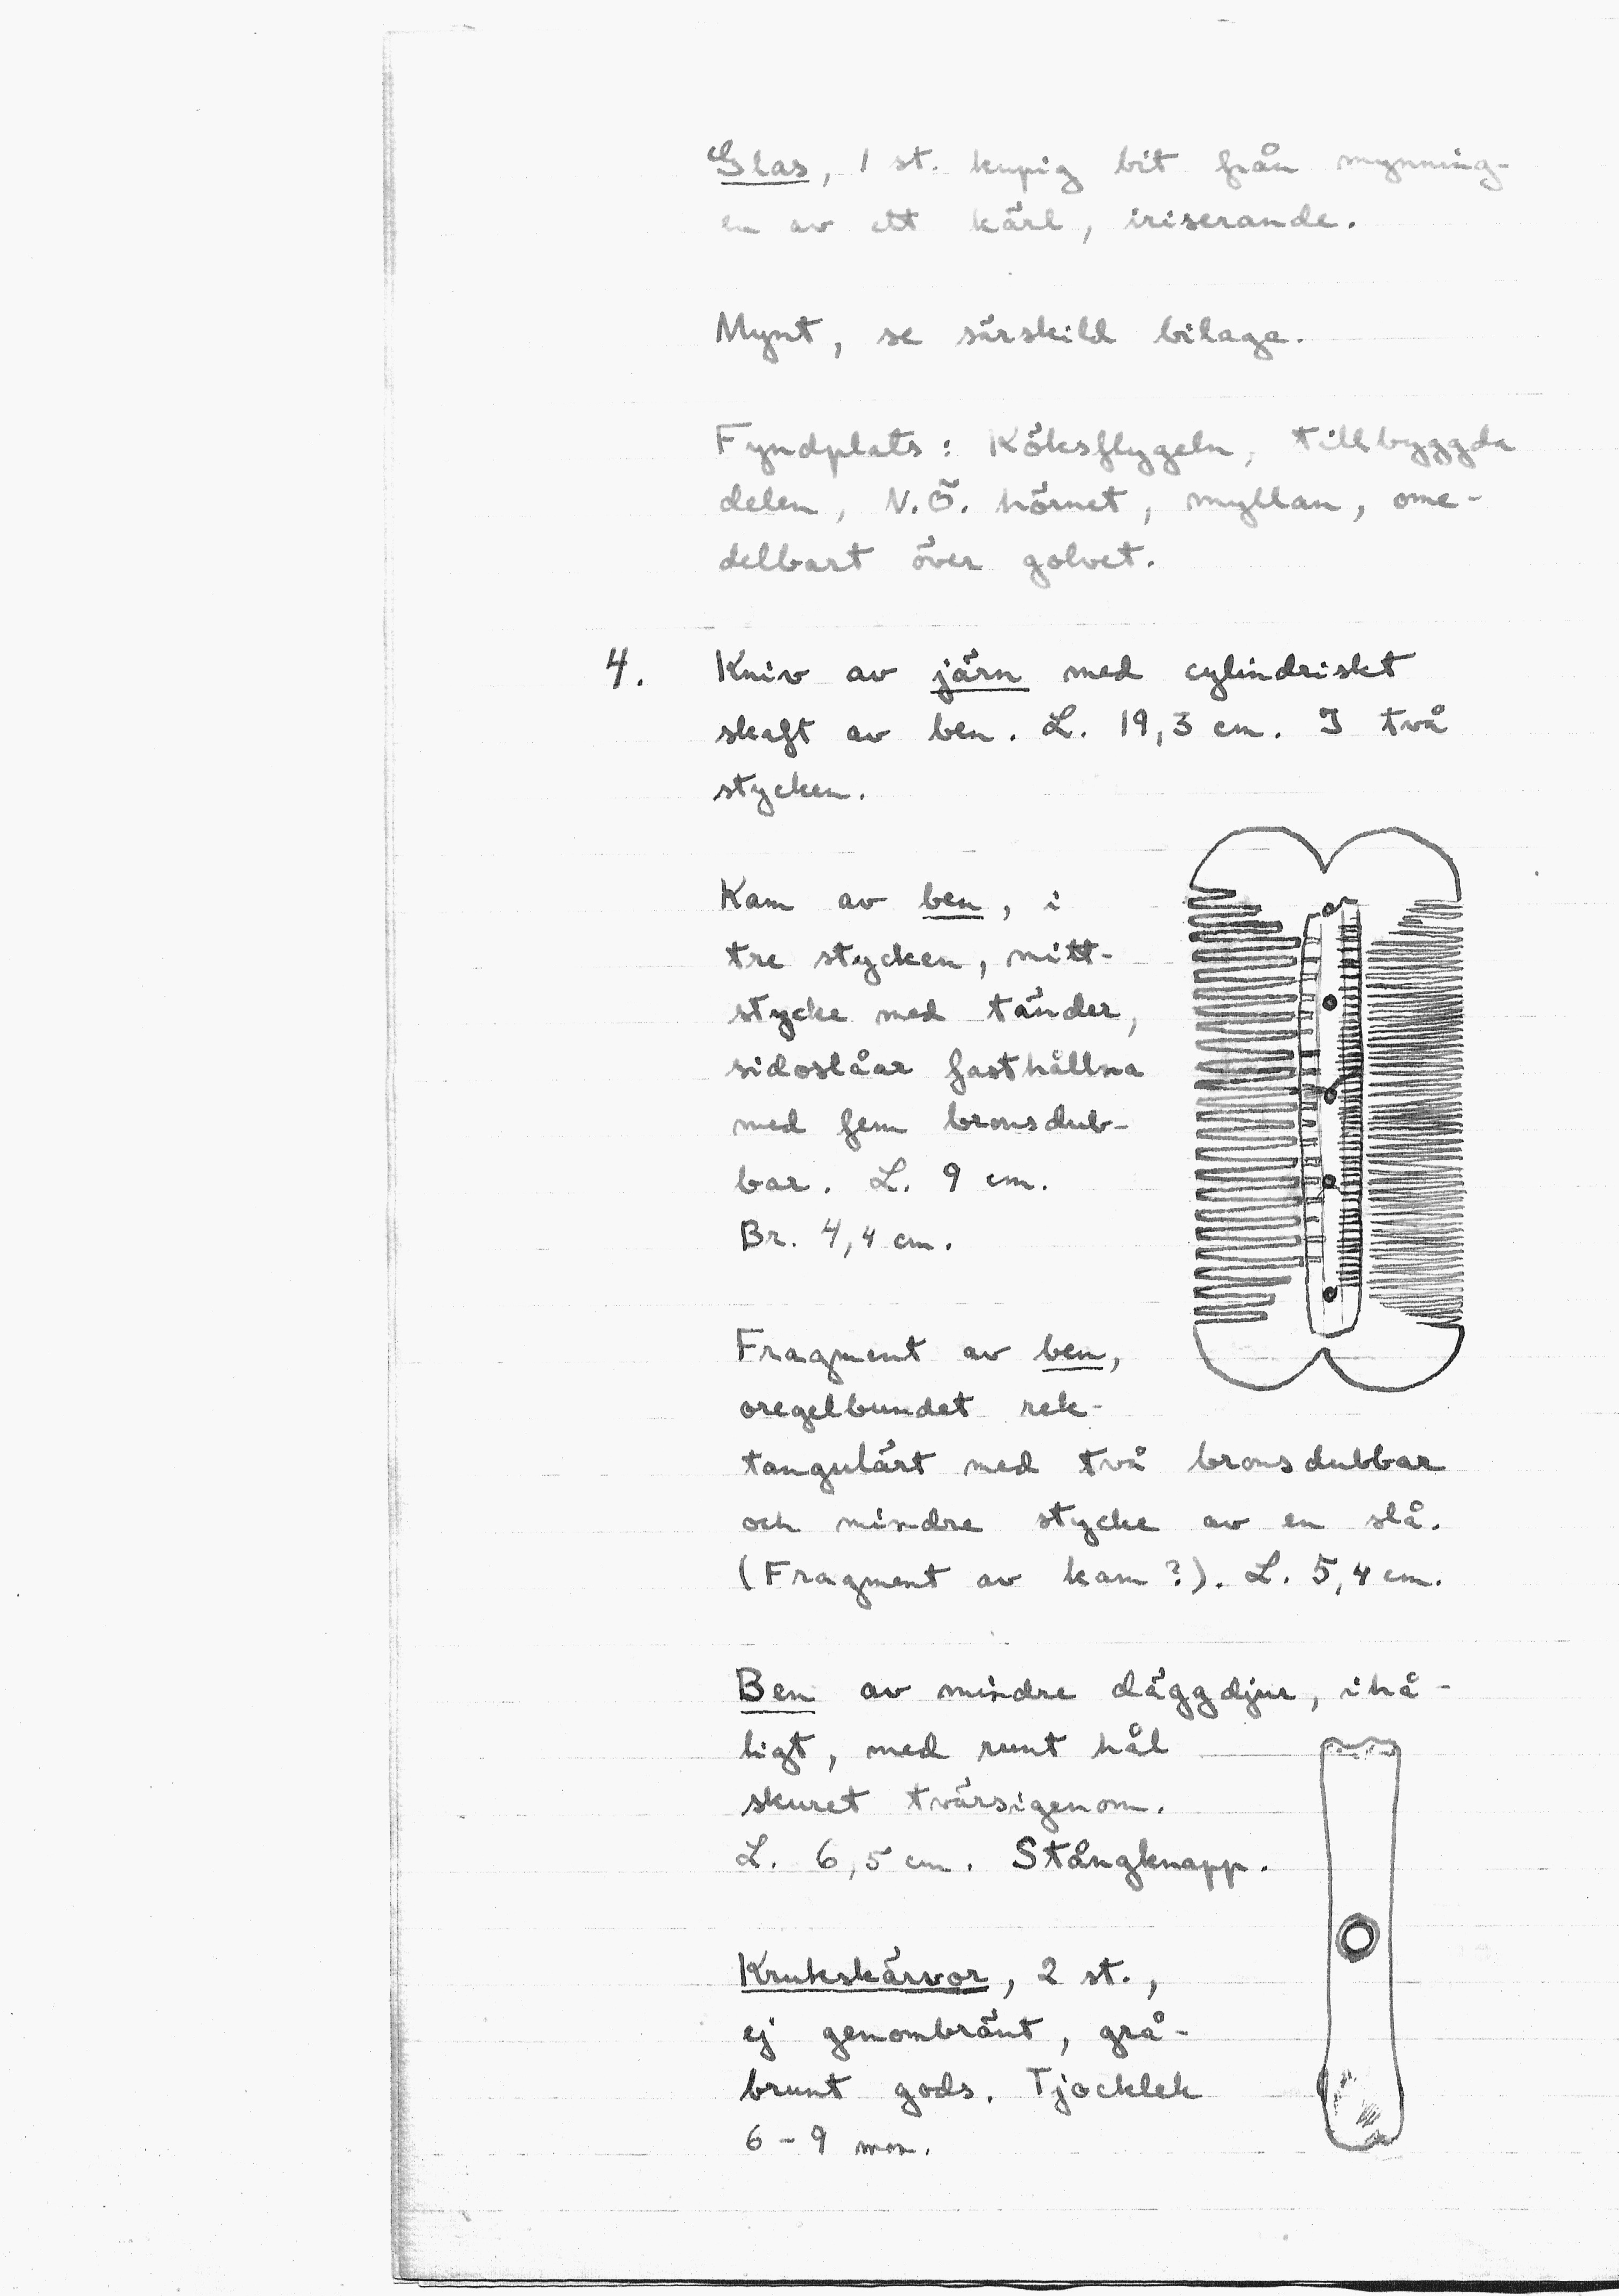 Glas, 1 st. kupig bit från mynning-
en av ett kärl, iriserande.
Mynt, se särskild bilaga.
Fyndplats: Köksflygeln, tillbyggda
delen, N.Ö. hörnet, myllan, ome-
delbart över golvet.
4. Kniv av järn med cylindriskt
skaft av ben. L. 19,3 cm. I två
stycken.
Kam av ben, i
tre stycken, mitt-
stycke med tänder,
sidoslåar fasthållna
med fem bronsdub-
bar. L. 9 cm.
Br. 4,4 cm.
Fragment av ben,
oregelbundet rek-
tangulärt med två bronsdubbar
och mindre stycke av en slå.
(Fragment av kam?). L. 5,4 cm.
Ben av mindre däggdjur, ihå-
ligt, med runt hål
skuret tvärsigenom.
L. 6,5 cm. Stångknapp.
Krukskärvor, 2 st.,
ej genombränt, grå-
brunt gods. Tjocklek
6-9 mm.